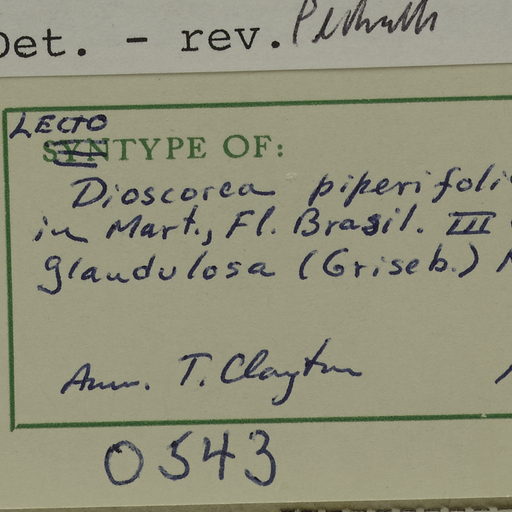 Det. - rev.
LECTO
SYNTYPE OF:
Dioscorea piperifoli
in Mart., Fl. Brasil. III
glandulosa (Griseb.)
Ann. T. Clayton
0543